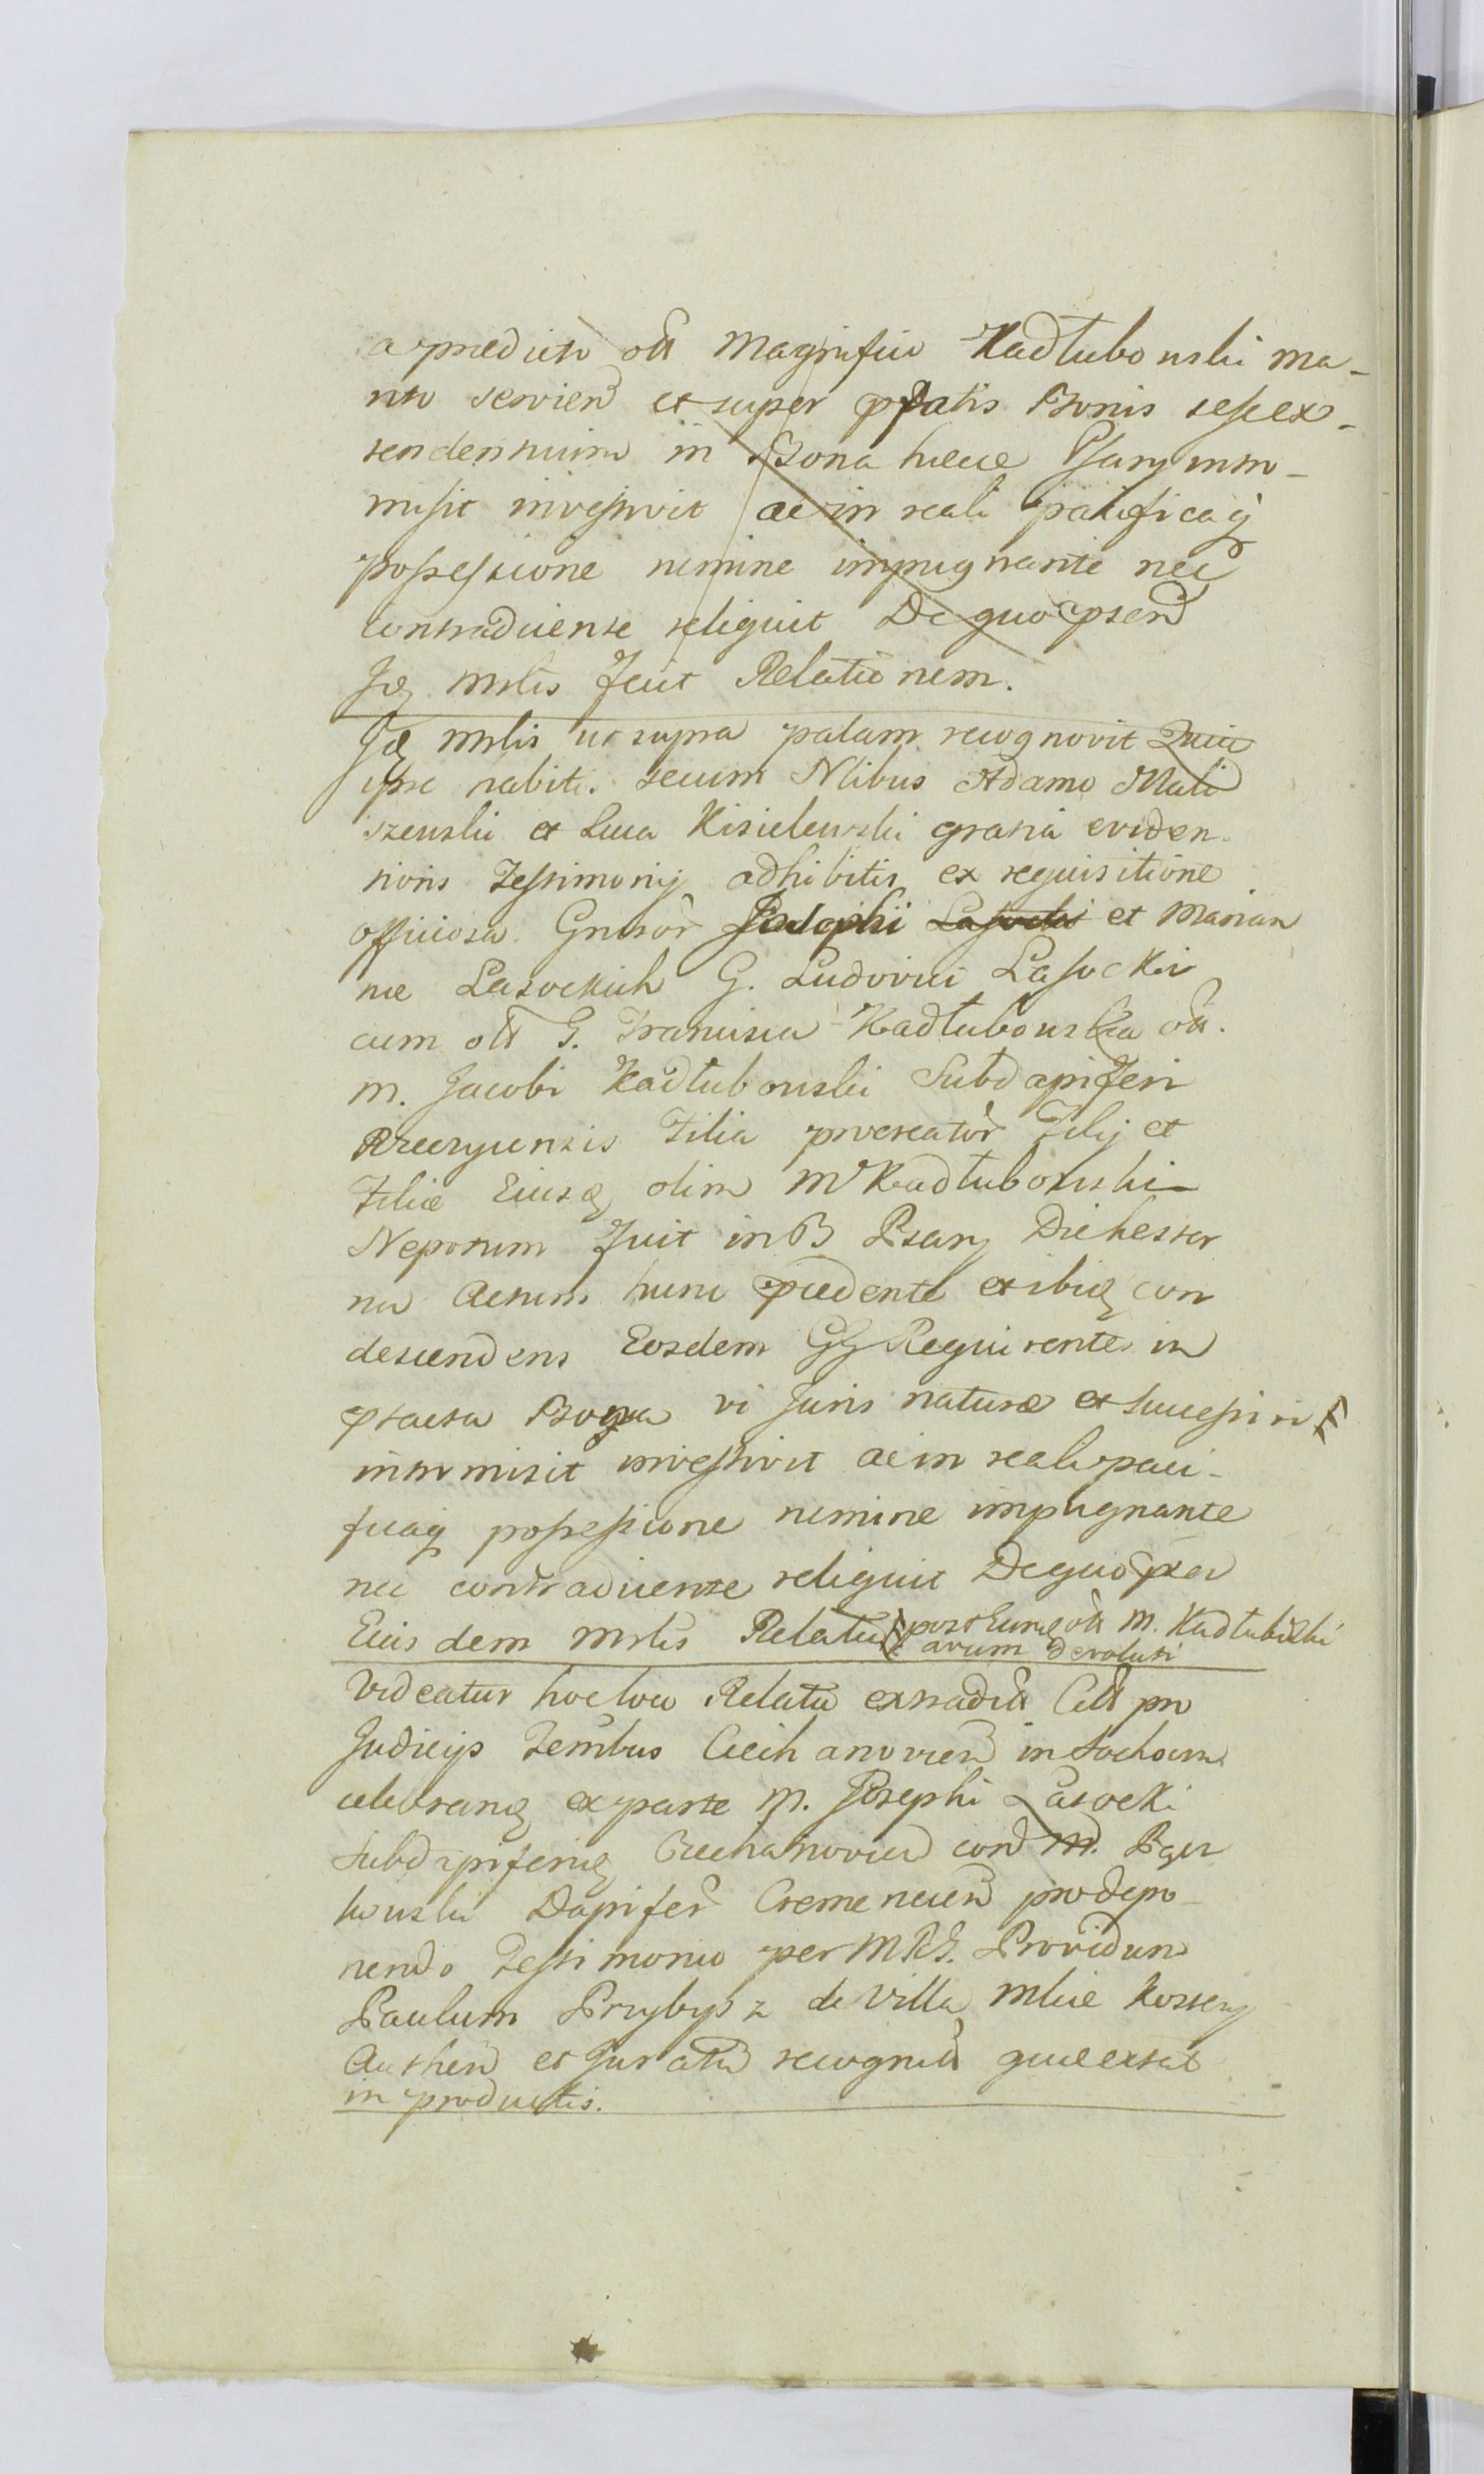 a prædicto oll Magnifico Kadłubowski ma-
rito servien et super pfatis Bonis sese ex-
tendentium in Bona hæcce Psary intro-
misit investivit ac in reali pacificaq
possessione nemine impugnante nec
contradicente reliquit De quo psen
Idq Mrlis fecit Relationem.
Idq Mrlis ut supra palam recognovit Quia
ipse habitis secum Nlibus Adamo Mali
szewski et Luca Kisielewski gratia eviden-
tioris Testimonij adhibitis ex requisitione
officiosa Gnsor Josephi Lasocki et Marian
næ Lasockich G. Ludovici Lasocki
cum oll G. Francisca Kadłubowska oll.
M. Jacobi Kadłubowski Subdapiferi
Rzeczycensis Filia procreator Filij et
Filiæ Eiusq olim M Kadłubowski
Nepotum fuit in B Psary Die hester
na Actum hunc præcedente et ibiq con
descendens Eosdem GG Requirentes in
ptacta Bona vi Juris naturæ et successivi
intromisit investivit ac in reali paci-
ficaq possessione nemine impugnante
nec contradicente reliquit De quo per
Eiusdem Mrlis Relatio post Eund oll M. Kadłubowski
avum devoluti
Videatur hoc loco Relatio extradit Cit pro
Judicijs Terribus Ciechanovien in Sochocin
celebrandq ex parte M. Josephi Lasocki
Subdapiferiq Ciechanovien con M.
kowski Dapifer Cremenecen pro depo-
nendo Testimonio per MRG. Providum
Paulum Przybysz de Villa Mlice Kossery
Authen et Juratu recognit quæ extat
in productis.